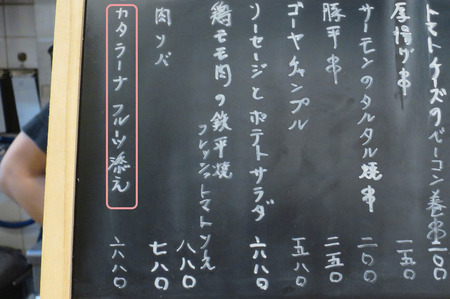 トマトチーズのベーコン巻串 二〇〇
厚揚げ串 一五〇
サーモンのタルタル焼串 二〇〇
豚平串 二五〇
ゴーヤチャンプル 五八〇
ソーセージとポテトサラダ 六八〇
鶏モモ肉の鉄平焼
フレッシュトマトソえ 八八〇
肉ソバ 七八〇
カタラーナ フルーツ添え 六八〇